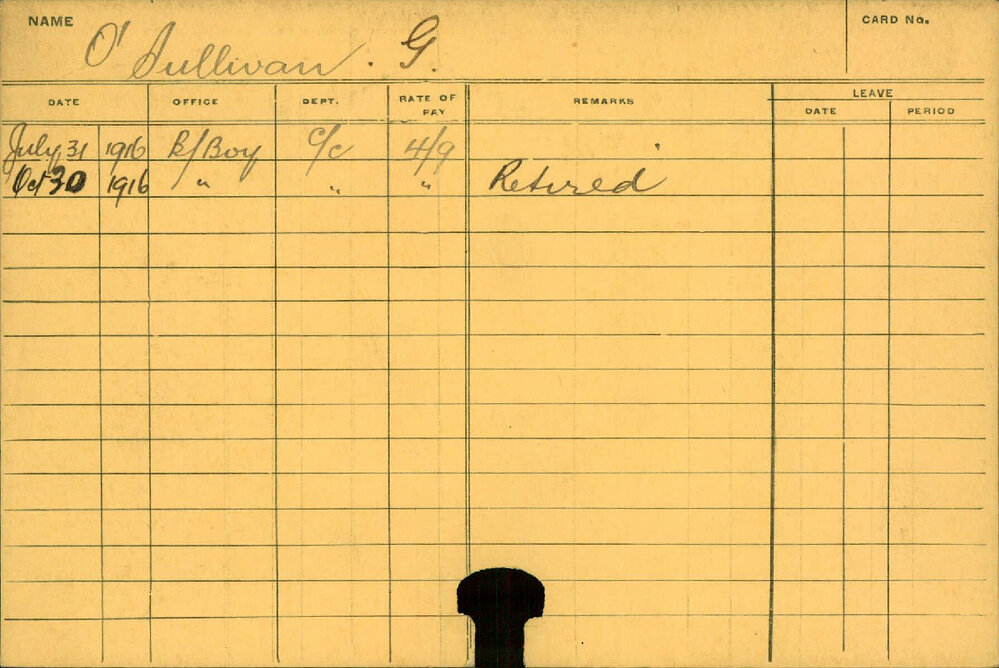 NAME O'Sullivan . G. CARD No.
DATE OFFICE DEPT. RATE OF PAY REMARKS LEAVE
DATE PERIOD
July 31 1916 R/Boy C/c 4/9
Oct 30 1916 " " " Retired